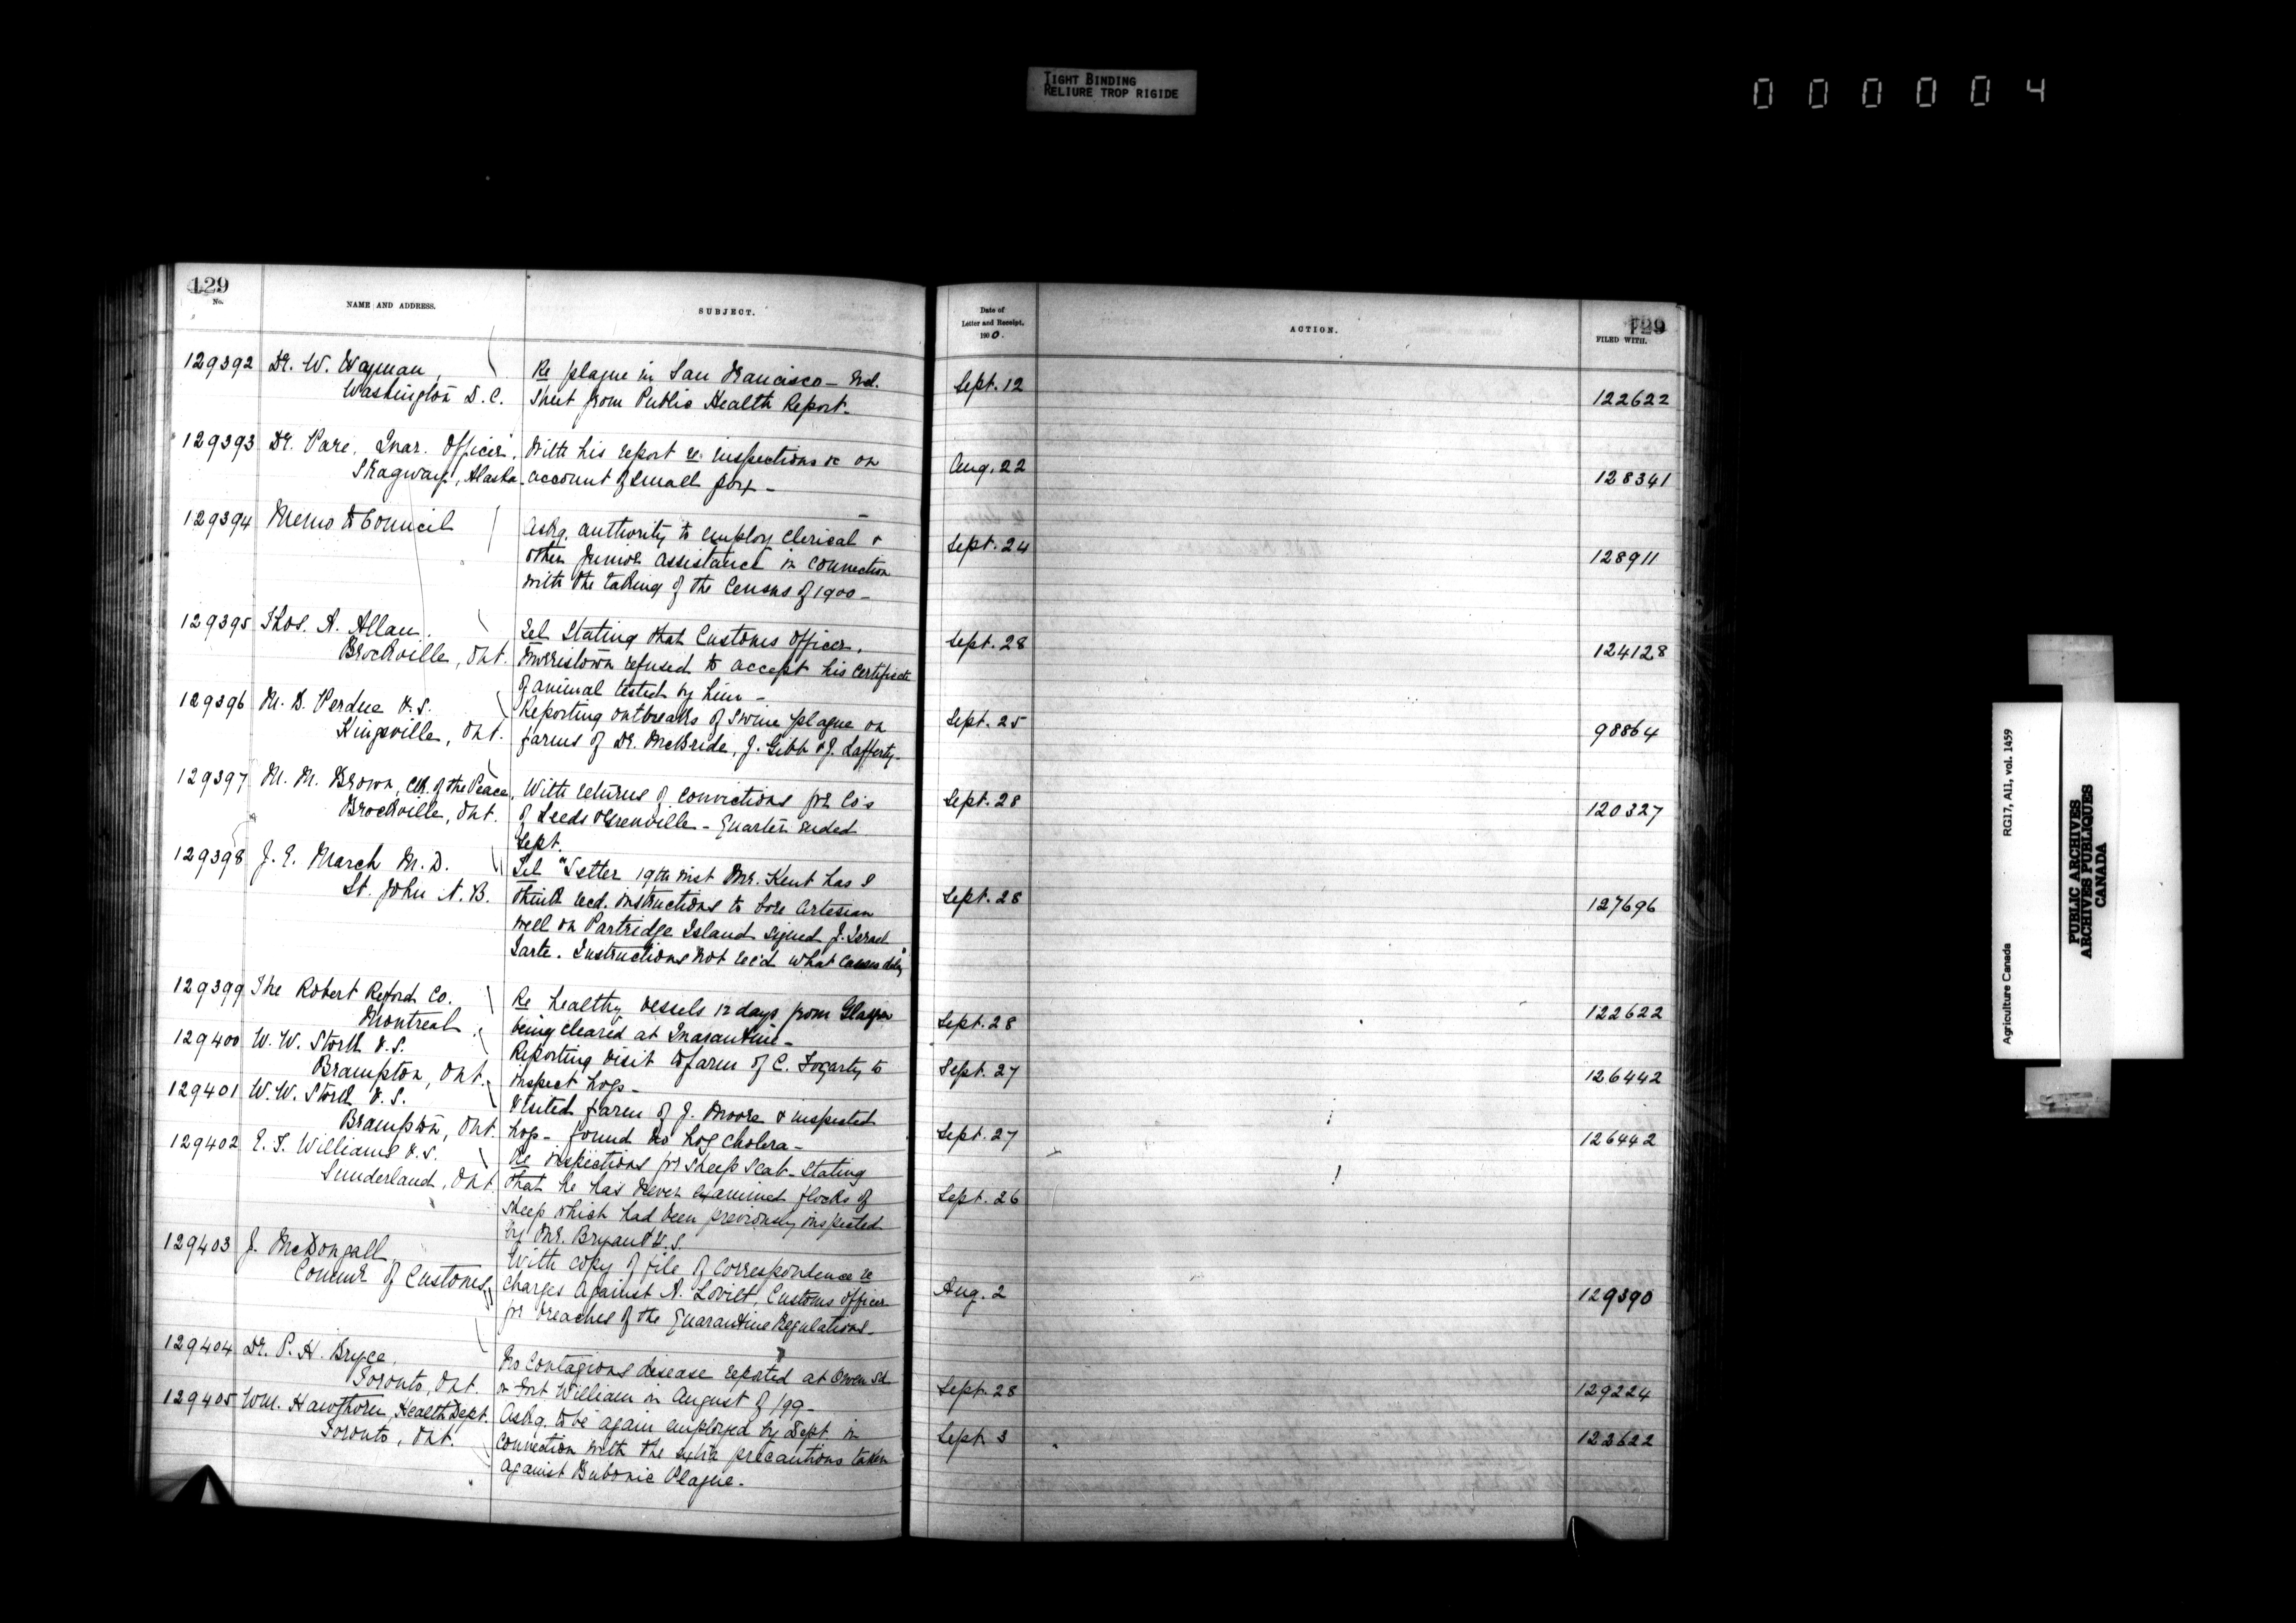 TIGHT BINDING
RELIURE TROP RIGIDE
000004
129
No.
NAME AND ADDRESS.
SUBJECT.
129392 Dr. W. Wayman,
Washington D.C.
Re plague in San Francisco — Incl.
Sheet from Public Health Report.
129393 Dr. Pare, Quar. Officer,
Skagway, Alaska.
With his report re inspections &c on
account of small pox —
129394 Memo to Council
Askg. authority to employ clerical &
other junior assistance in connection
with the taking of the Census of 1900 —
129395 Thos. A. Allan
Brockville, Ont.
Tel Stating that Customs Officer,
Morristown refused to accept his certificate
of animal tested by him —
129396 M. B. Perdue V.S.
Kingsville, Ont.
Reporting outbreaks of swine plague on
farms of Dr. McBride, J. Gibb & J. Lafferty.
129397 M. M. Brown, Clk. of the Peace,
Brockville, Ont.
With returns of convictions for Co's
of Leeds & Grenville — Quarter ended
Sept.
129398 J. E. March M.D.
St. John N.B.
Tel "Letter 19th inst Mr. Kent has I
think recd. instructions to bore artesian
well on Partridge Island signed J. Israel
Tarte. Instructions not rec'd what causes delay"
129399 The Robert Reford Co.
Montreal
Re healthy vessels 12 days from Glasgow
being cleared at Quarantine —
129400 W. W. Stork V.S.
Brampton, Ont.
Reporting visit to farm of C. Fogarty to
inspect hogs —
129401 W. W. Stork V.S.
Brampton, Ont.
Visited farm of J. Moore & inspected
hogs — found no hog cholera —
129402 E. T. Williams V.S.
Sunderland, Ont.
Re inspections for Sheep Scab — Stating
that he has never examined flocks of
sheep which had been previously inspected
by Mr. Bryant V.S.
129403 J. McDougall,
Commr of Customs,
With copy of file of correspondence re
charges against A. Lovitt, Customs Officer
for breaches of the Quarantine Regulations —
129404 Dr. P. H. Bryce,
Toronto, Ont.
No contagious disease reported at Owen Sd
or Fort William in August of 199 —
129405 Wm. Hawthorn, Health Dept.
Toronto, Ont.
Askg. to be again employed by Dept. in
connection with the extra precautions taken
against Bubonic Plague.
Date of
Letter and Receipt,
1900.
ACTION.
129
FILED WITH.
Sept. 12 122622
Aug. 22 128341
Sept. 24 128911
Sept. 28 124128
Sept. 25 98864
Sept. 28 120327
Sept. 28 127696
Sept. 28 122622
Sept. 27 126442
Sept. 27 126442
Sept. 26
Aug. 2 129390
Sept. 28 129224
Sept. 3 122622
Agriculture Canada RG17, AII, vol. 1459
PUBLIC ARCHIVES
ARCHIVES PUBLIQUES
CANADA